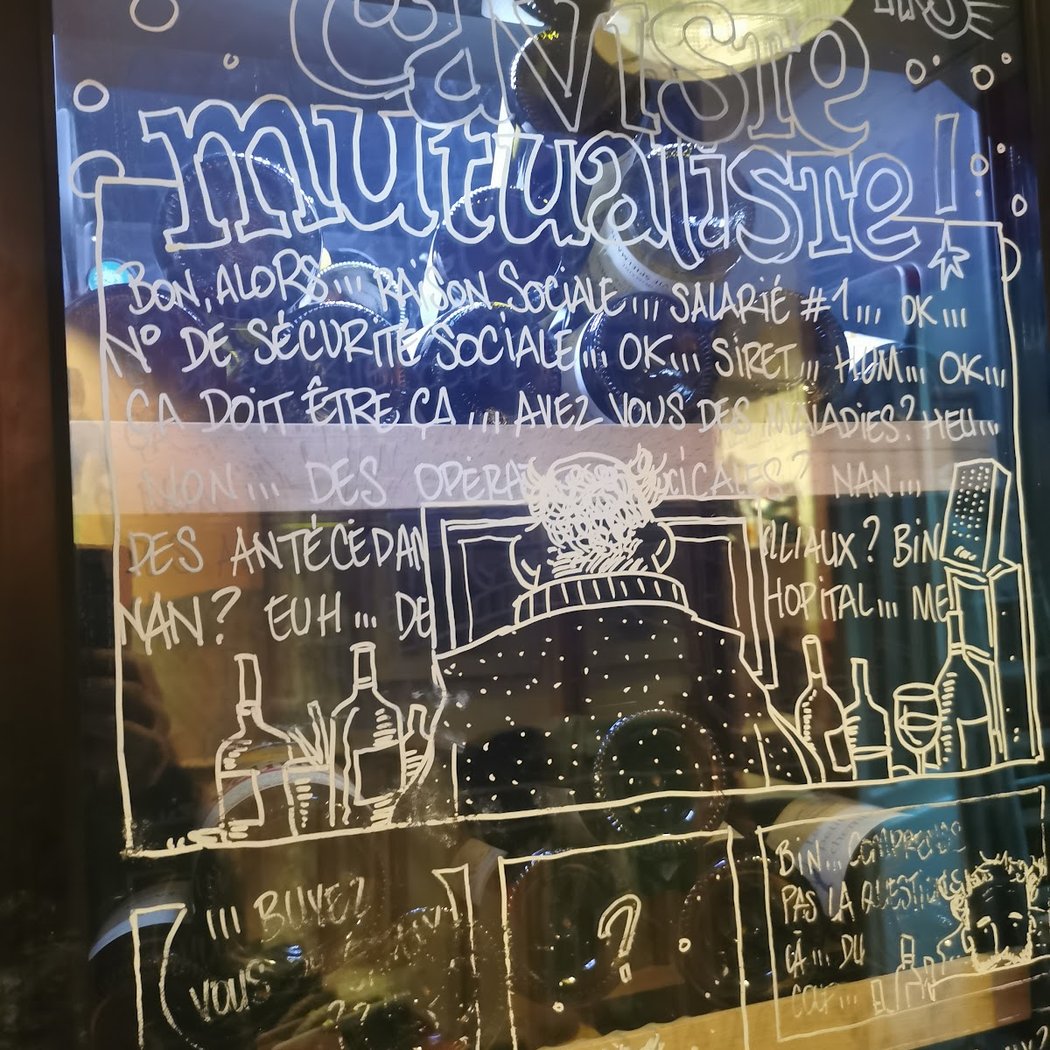 caviste
mutualiste!
BON, ALORS... RAISON SOCIALE... SALARIÉ #1... OK...
N° DE SÉCURITÉ SOCIALE... OK... SIRET... HUM... OK...
ÇA DOIT ÊTRE ÇA... AVEZ VOUS DES MALADIES? HEU...
NON... DES NAN...
DES BIN
NAN? EUH... HOPITAL...
... BUVEZ
VOUS
??
?
BIN... COMPRENDS
PAS LA QUESTION
ÇÀ... DU
COUP...